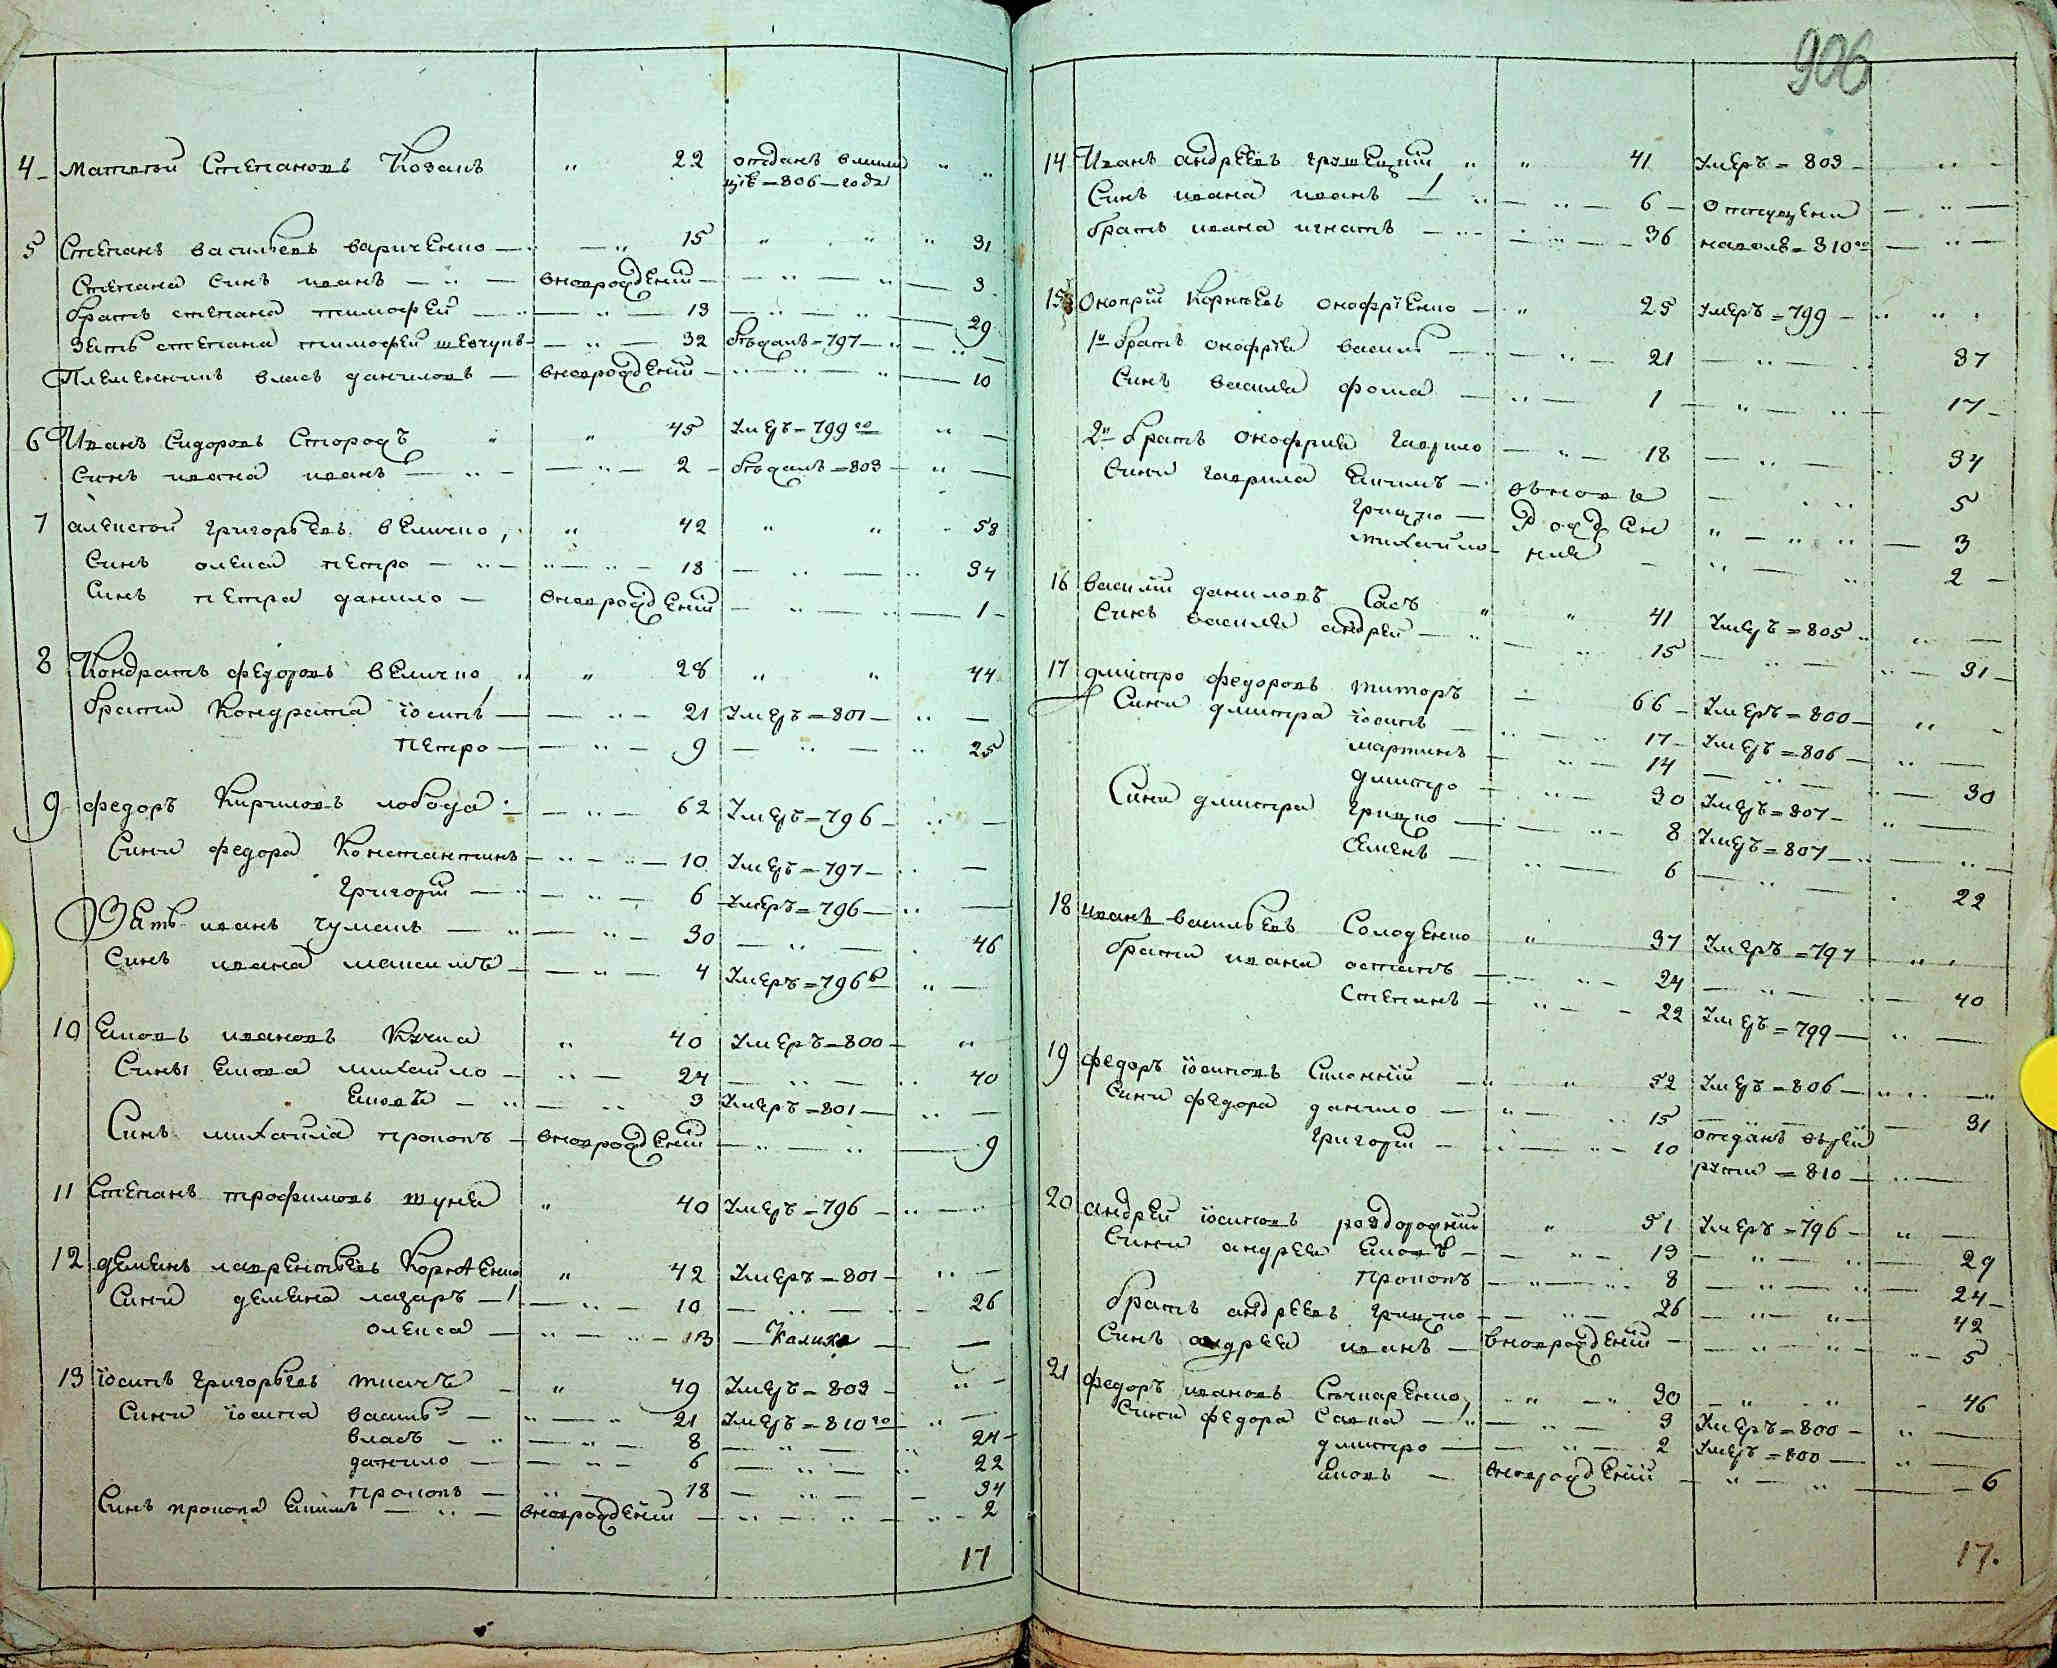 906
4 Матвей Степановъ Козакъ " 22 отданъ в мили
цїю = 806 = года
5 Степанъ Васильевъ Вариченко 15 " " 31
Степана синъ иванъ вноврожденїй 3
братъ степана тимофей 13 29
Зять степана тимофей шевчукъ 32 бѣжалъ = 797
Племенникъ власъ даниловъ вноврожденїй 10
6 Иванъ Сидоровъ Сторожъ " 45 Умеръ = 799 го
Синъ ивана иванъ 2 бѣжалъ = 803
7 алексей григорьевъ величко " 42 " " 58
Синъ олекси петро 18 34
Синъ петра данило вноврожденїй 1
8 Кондратъ федоровъ величко " 28 " " 44
брати Кондрата їосипъ 21 Умеръ = 801
петро 9 25
9 федоръ Кириловъ лобода 62 Умеръ = 796
Сини федора Константинъ 10 Умеръ = 797
григорїй 6 Умеръ = 796
Зять иванъ чумакъ 30 46
Синъ ивана максимъ 4 Умеръ = 796
10 Яковъ ивановъ Кучма " 40 Умеръ = 800
Сины Якова михайло 24 40
Яковъ 3 Умеръ = 801
Синъ михайла прокопъ вноврожденїй 9
11 Степанъ трофимовъ шуля " 40 Умеръ = 796
12 демянъ лаврентьевъ Корнѣенко " 42 Умеръ = 801
Сини демяна лазаръ 10 26
олекса 13 Калика
13 їосипъ григорьевъ ткачъ " 49 Умеръ = 803
Сини їосипа василь 21 Умеръ = 810 го
власъ 8 24
данило 6 22
прокопъ 18 34
Синъ прокопа Якимъ вноврожденїй 2
17
14 Иванъ андреевъ грушецкїй " 41 Умеръ = 803
Синъ ивана иванъ 6 отпущени
братъ ивана игнатъ 36 наволю = 810 го
15 Онопрїй Корнѣевъ онофрїенко " 25 Умеръ = 799
1й братъ онофрїя василь 21 37
Синъ василя фома 1 17
2й братъ онофрия гаврило 18 34
Сини гаврила Якимъ вновѣ 5
грицко рожден 3
михайло нїя 2
16 василїй даниловъ Сасъ " 41 Умеръ = 805
Синъ василя андрей 15 31
17 дмитро федоровъ титоръ 66 Умеръ = 800
Сини дмитра їосипъ 17 Умеръ = 806
мартинъ 14 30
дмитро 30 Умеръ = 807
Сини дмитра грицко 8 Умеръ = 807
Семенъ 6 22
18 иванъ васильевъ Солоденко " 37 Умеръ = 797
брати ивана остапъ 24 40
Степанъ 22 Умеръ = 799
19 федоръ їосиповъ Силонїй " 52 Умеръ = 806
Сини федора данило 15 31
григорїй 10 отданъ врек
рути = 810
20 андрей їосиповъ роздорожнїй " 51 Умеръ = 796
Сини андрея Яковъ 13 29
прокопъ 8 24
братъ андреевъ грицко 26 42
Синъ андрея иванъ вноврожденїй 5
21 федоръ ивановъ 30 46
Сини федора Савка 3 Умеръ = 800
дмитро 2 Умеръ = 800
Яковъ вноврожденїй 6
17.